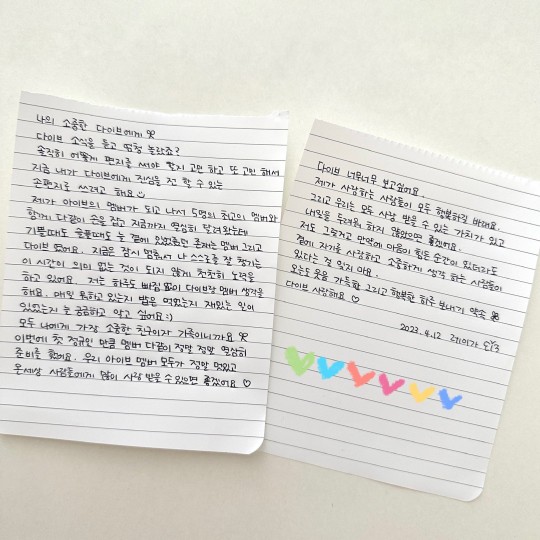 나의 소중한 다이브에게 🎀
다이브 소식을 듣고 엄청 놀랐죠?
솔직히 어떻게 편지를 써야 할지 고민 하고 또 고민 해서
지금 내가 다이브에게 진심을 전 할 수 있는
손편지로 쓰려고 해요
제가 아이브의 멤버가 되고 나서 5명의 최고의 멤버와
함께 다같이 손을 잡고 지금까지 열심히 달려왔는데
기쁠때도 슬플때도 늘 곁에 있었던 존재는 멤버 그리고
다이브 였어요. 지금은 잠시 멈춰서 나 스스로를 잘 챙기는
이 시간이 의미 없는 것이 되지 않게 천천히 노력을
하고 있어요. 저는 하루도 빠짐 없이 다이브랑 멤버 생각을
해요. 매일 뭐하고 있는지 밥은 먹었는지 재밌는 일이
있었는지 늘 궁금하고 알고 싶어요 :)
모두 나에게 가장 소중한 친구이자 가족이니까요 🎀
이번에 첫 정규인 만큼 멤버 다같이 정말 정말 열심히
준비를 했어요. 우리 아이브 멤버 모두가 정말 멋있고
온세상 사람들에게 많이 사랑 받을 수 있으면 좋겠어요 ♡
다이브 너무너무 보고싶어요.
제가 사랑하는 사람들이 모두 행복하길 바래요.
그리고 우리는 모두 사랑 받을 수 있는 가치가 있고
내일을 두려워 하지 않았으면 좋겠어요.
저도 그렇고 만약에 마음이 힘든 순간이 있더라도
곁에 자기를 사랑하고 소중하게 생각 하는 사람들이
있다는 걸 잊지 마요.
오늘도 웃음 가득한 그리고 행복한 하루 보내기 약속 🎀
다이브 사랑해요 ♡
2023.4.12 레이가